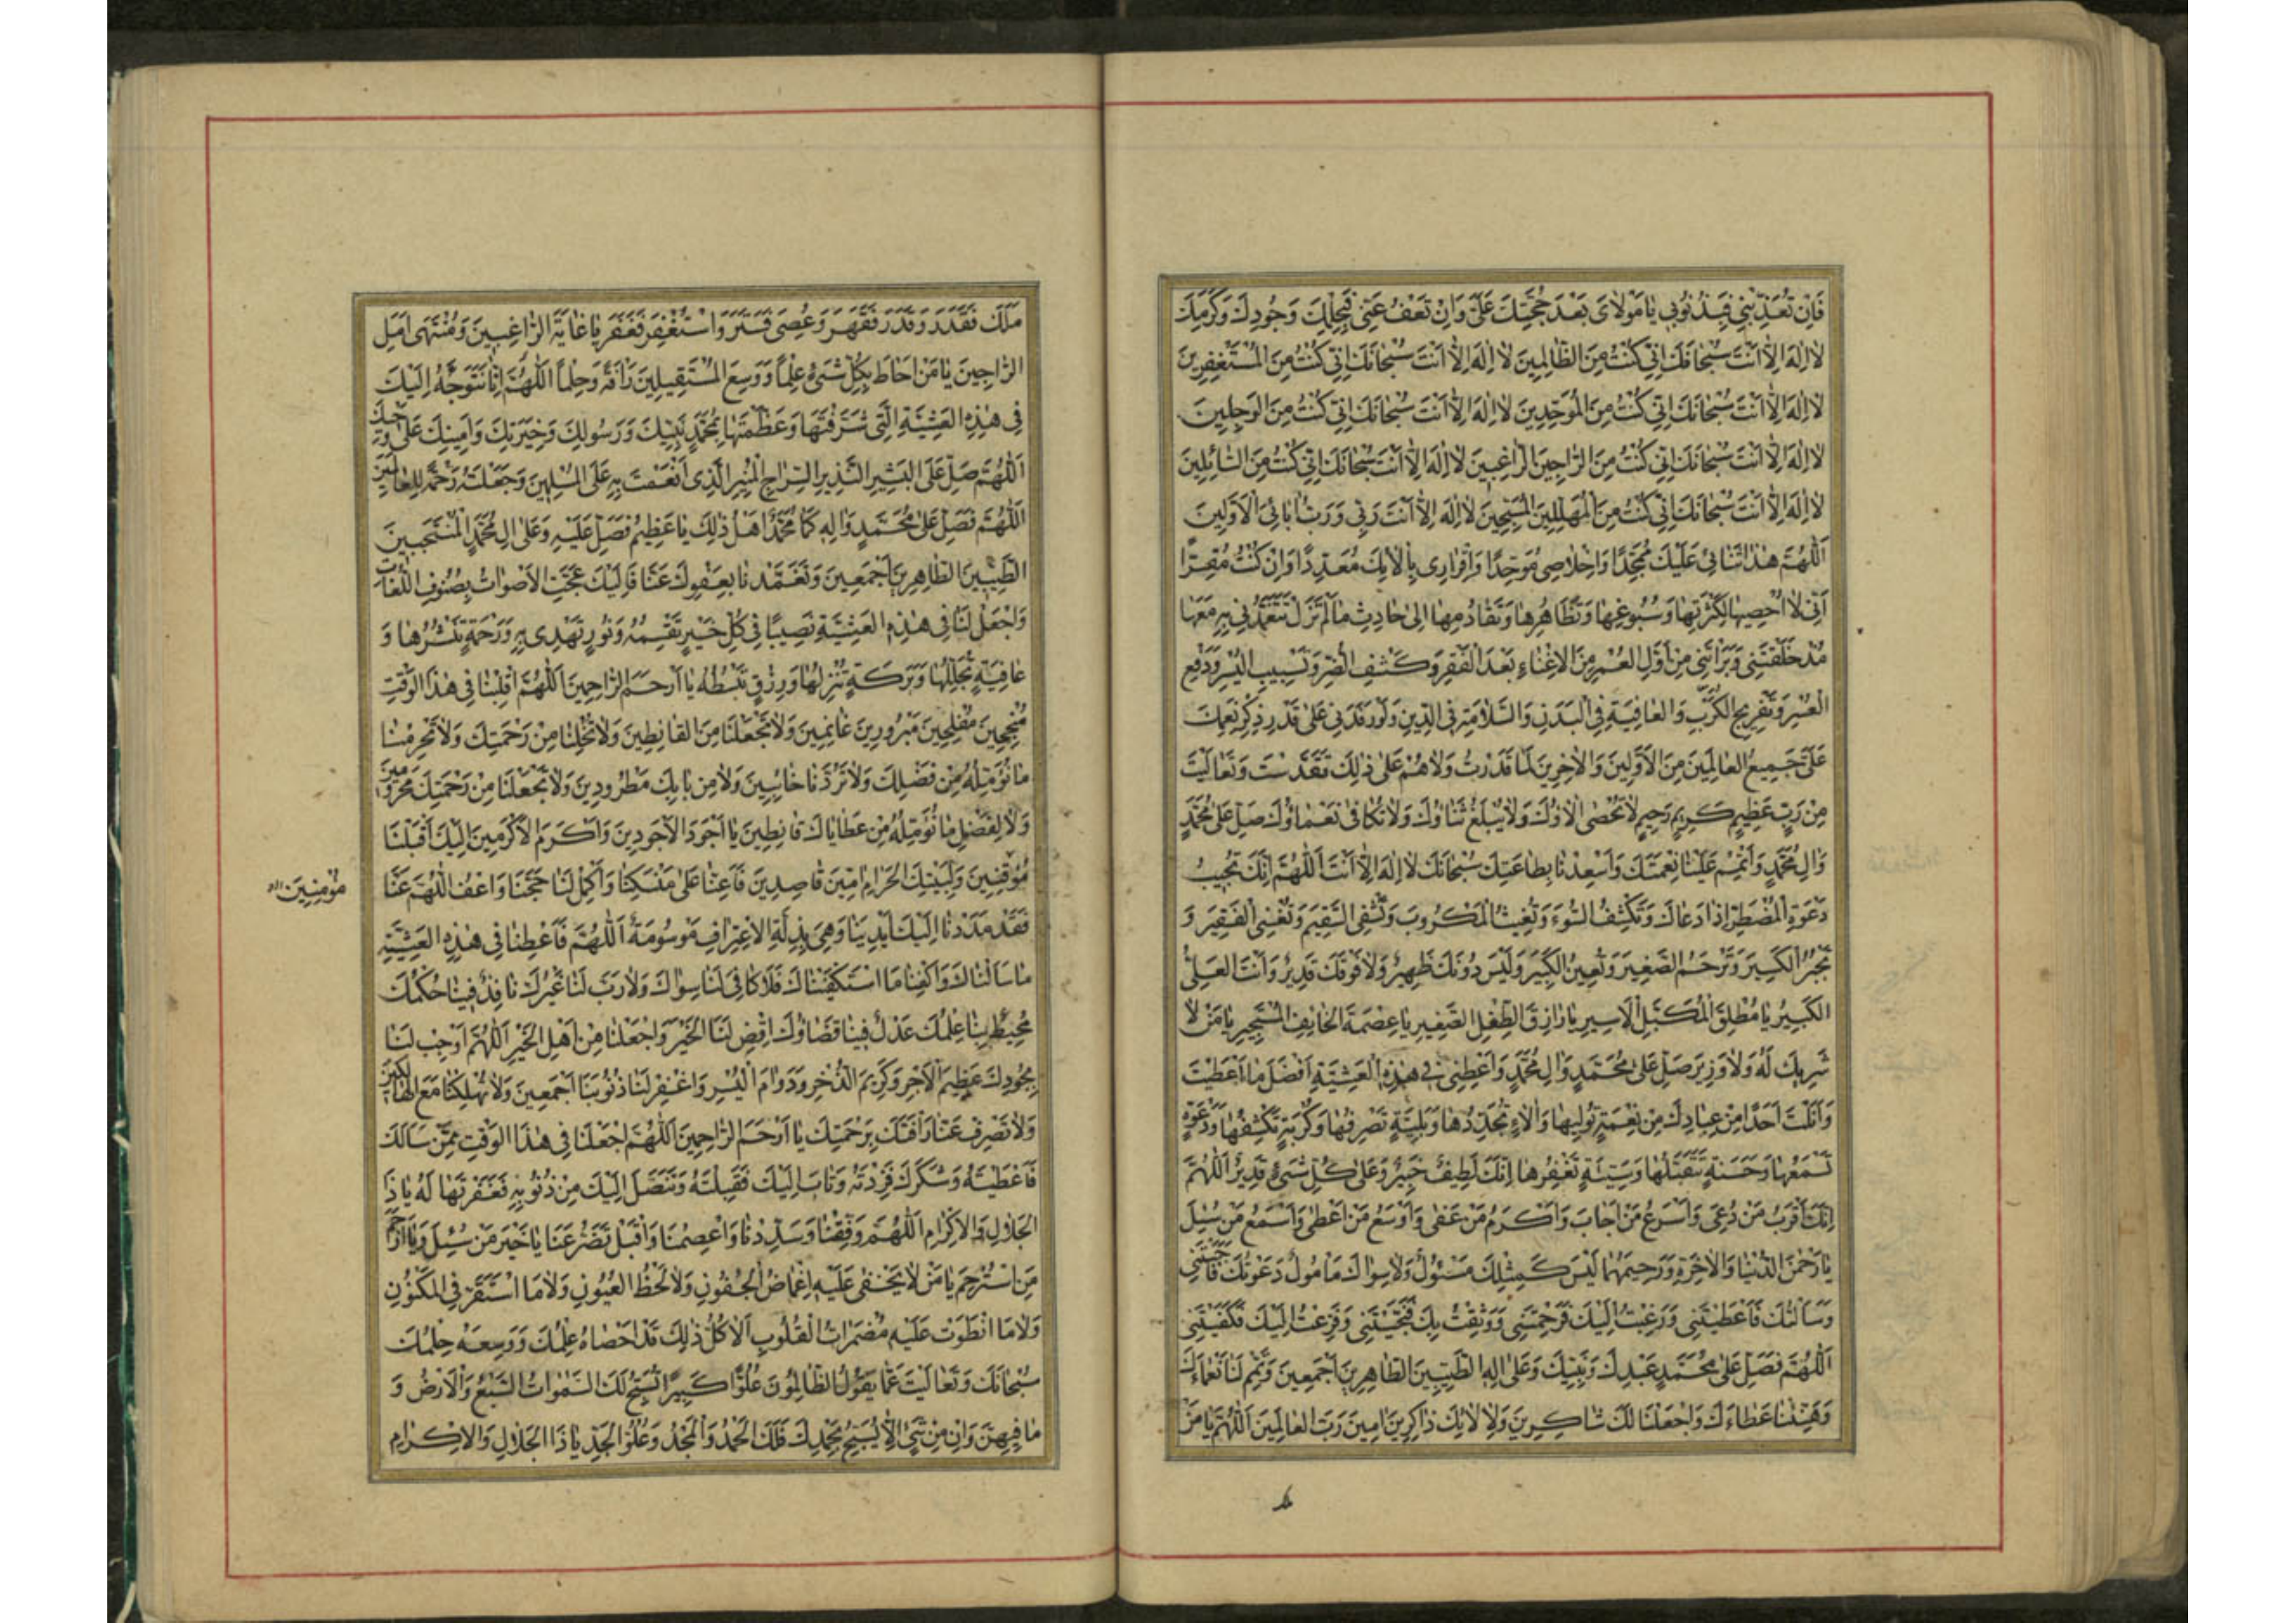 فَاِنْ تُعَذِّبْنِي فَبِذُنُوبِي يَا مَوْلَايَ بَعْدَ حُجَّتِكَ عَلَيَّ وَاِنْ تَعْفُ عَنِّي فَبِحِلْمِكَ وَجُودِكَ وَكَرَمِكَ
لَا اِلٰهَ اِلَّا اَنْتَ سُبْحَانَكَ اِنِّي كُنْتُ مِنَ الظَّالِمِينَ لَا اِلٰهَ اِلَّا اَنْتَ سُبْحَانَكَ اِنِّي كُنْتُ مِنَ الْمُسْتَغْفِرِينَ
لَا اِلٰهَ اِلَّا اَنْتَ سُبْحَانَكَ اِنِّي كُنْتُ مِنَ الْمُوَحِّدِينَ لَا اِلٰهَ اِلَّا اَنْتَ سُبْحَانَكَ اِنِّي كُنْتُ مِنَ الْوَجِلِينَ
لَا اِلٰهَ اِلَّا اَنْتَ سُبْحَانَكَ اِنِّي كُنْتُ مِنَ الرَّاجِينَ الرَّاغِبِينَ لَا اِلٰهَ اِلَّا اَنْتَ سُبْحَانَكَ اِنِّي كُنْتُ مِنَ السَّائِلِينَ
لَا اِلٰهَ اِلَّا اَنْتَ سُبْحَانَكَ اِنِّي كُنْتُ مِنَ الْمُهَلِّلِينَ الْمُسَبِّحِينَ لَا اِلٰهَ اِلَّا اَنْتَ رَبِّي وَرَبُّ اٰبَائِيَ الْاَوَّلِينَ
اَللّٰهُمَّ هٰذَا ثَنَائِي عَلَيْكَ مُمَجِّدًا وَاِخْلَاصِي مُوَحِّدًا وَاِقْرَارِي بِاٰلَائِكَ مُعَدِّدًا وَاِنْ كُنْتُ مُقِرًّا
اَنِّي لَا اُحْصِيهَا لِكَثْرَتِهَا وَسُبُوغِهَا وَتَظَاهُرِهَا وَتَقَادُمِهَا اِلٰى حَادِثٍ مَا لَمْ تَزَلْ تَتَغَمَّدُنِي بِهِ مَعَهَا
مُذْ خَلَقْتَنِي وَبَرَأْتَنِي مِنْ اَوَّلِ الْعُمْرِ مِنَ الْاِغْنَاءِ بَعْدَ الْفَقْرِ وَكَشْفِ الضُّرِّ وَتَسْبِيبِ الْيُسْرِ وَدَفْعِ
الْعُسْرِ وَتَفْرِيجِ الْكَرْبِ وَالْعَافِيَةِ فِي الْبَدَنِ وَالسَّلَامَةِ فِي الدِّينِ وَلَوْ رَفَدَنِي عَلٰى قَدْرِ ذِكْرِ نِعَمِكَ
عَلَيَّ جَمِيعُ الْعَالَمِينَ مِنَ الْاَوَّلِينَ وَالْاٰخِرِينَ لَمَا قَدَرْتُ وَلَا هُمْ عَلٰى ذٰلِكَ تَقَدَّسْتَ وَتَعَالَيْتَ
مِنْ رَبٍّ عَظِيمٍ كَرِيمٍ رَحِيمٍ لَا تُحْصٰى اٰلَاؤُكَ وَلَا يُبْلَغُ ثَنَاؤُكَ وَلَا تُكَافٰى نَعْمَاؤُكَ صَلِّ عَلٰى مُحَمَّدٍ
وَاٰلِ مُحَمَّدٍ وَاَتْمِمْ عَلَيْنَا نِعْمَتَكَ وَاَسْعِدْنَا بِطَاعَتِكَ سُبْحَانَكَ لَا اِلٰهَ اِلَّا اَنْتَ اَللّٰهُمَّ اِنَّكَ تُجِيبُ
دَعْوَةَ الْمُضْطَرِّ اِذَا دَعَاكَ وَتَكْشِفُ السُّوءَ وَتُغِيثُ الْمَكْرُوبَ وَتَشْفِي السَّقِيمَ وَتُغْنِي الْفَقِيرَ وَ
تَجْبُرُ الْكَسِيرَ وَتَرْحَمُ الصَّغِيرَ وَتُعِينُ الْكَبِيرَ وَلَيْسَ دُونَكَ ظَهِيرٌ وَلَا فَوْقَكَ قَدِيرٌ وَاَنْتَ الْعَلِيُّ
الْكَبِيرُ يَا مُطْلِقَ الْمُكَبَّلِ الْاَسِيرِ يَا رَازِقَ الطِّفْلِ الصَّغِيرِ يَا عِصْمَةَ الْخَائِفِ الْمُسْتَجِيرِ يَا مَنْ لَا
شَرِيكَ لَهُ وَلَا وَزِيرَ صَلِّ عَلٰى مُحَمَّدٍ وَاٰلِ مُحَمَّدٍ وَاَعْطِنِي فِي هٰذِهِ الْعَشِيَّةِ اَفْضَلَ مَا اَعْطَيْتَ
وَاَنَلْتَ اَحَدًا مِنْ عِبَادِكَ مِنْ نِعْمَةٍ تُولِيهَا وَاٰلَاءٍ تُجَدِّدُهَا وَبَلِيَّةٍ تَصْرِفُهَا وَكُرْبَةٍ تَكْشِفُهَا وَدَعْوَةٍ
تَسْمَعُهَا وَحَسَنَةٍ تَتَقَبَّلُهَا وَسَيِّئَةٍ تَغْفِرُهَا اِنَّكَ لَطِيفٌ خَبِيرٌ وَعَلٰى كُلِّ شَيْءٍ قَدِيرٌ اَللّٰهُمَّ
اِنَّكَ اَقْرَبُ مَنْ دُعِيَ وَاَسْرَعُ مَنْ اَجَابَ وَاَكْرَمُ مَنْ عَفٰى وَاَوْسَعُ مَنْ اَعْطٰى وَاَسْمَعُ مَنْ سُئِلَ
يَا رَحْمٰنَ الدُّنْيَا وَالْاٰخِرَةِ وَرَحِيمَهُمَا لَيْسَ كَمِثْلِكَ مَسْئُولٌ وَلَا سِوَاكَ مَأْمُولٌ دَعَوْتُكَ فَاَجَبْتَنِي
وَسَأَلْتُكَ فَاَعْطَيْتَنِي وَرَغِبْتُ اِلَيْكَ فَرَحِمْتَنِي وَوَثِقْتُ بِكَ فَنَجَّيْتَنِي وَفَزِعْتُ اِلَيْكَ فَكَفَيْتَنِي
اَللّٰهُمَّ فَصَلِّ عَلٰى مُحَمَّدٍ عَبْدِكَ وَنَبِيِّكَ وَعَلٰى اٰلِهِ الطَّيِّبِينَ الطَّاهِرِينَ اَجْمَعِينَ وَتَمِّمْ لَنَا نَعْمَاءَكَ
وَهَنِّئْنَا عَطَاءَكَ وَاجْعَلْنَا لَكَ شَاكِرِينَ وَلِاٰلَائِكَ ذَاكِرِينَ اٰمِينَ رَبَّ الْعَالَمِينَ اَللّٰهُمَّ يَا مَنْ
مَلَكَ فَقَدَرَ وَقَدَرَ فَقَهَرَ وَعُصِيَ فَسَتَرَ وَاسْتُغْفِرَ فَغَفَرَ يَا غَايَةَ الرَّاغِبِينَ وَمُنْتَهٰى اَمَلِ
الرَّاجِينَ يَا مَنْ اَحَاطَ بِكُلِّ شَيْءٍ عِلْمًا وَوَسِعَ الْمُسْتَقِيلِينَ رَأْفَةً وَحِلْمًا اَللّٰهُمَّ اِنَّا نَتَوَجَّهُ اِلَيْكَ
فِي هٰذِهِ الْعَشِيَّةِ الَّتِي شَرَّفْتَهَا وَعَظَّمْتَهَا بِمُحَمَّدٍ نَبِيِّكَ وَرَسُولِكَ وَخِيَرَتِكَ وَاَمِينِكَ عَلٰى وَحْيِكَ
اَللّٰهُمَّ صَلِّ عَلَى الْبَشِيرِ النَّذِيرِ السِّرَاجِ الْمُنِيرِ الَّذِي اَنْعَمْتَ بِهِ عَلَى الْمُسْلِمِينَ وَجَعَلْتَهُ رَحْمَةً لِلْعَالَمِينَ
اَللّٰهُمَّ فَصَلِّ عَلٰى مُحَمَّدٍ وَاٰلِهِ كَمَا مُحَمَّدٌ اَهْلُ ذٰلِكَ يَا عَظِيمُ فَصَلِّ عَلَيْهِ وَعَلٰى اٰلِ مُحَمَّدٍ الْمُنْتَجَبِينَ
الطَّيِّبِينَ الطَّاهِرِينَ اَجْمَعِينَ وَتَغَمَّدْنَا بِعَفْوِكَ عَنَّا فَاِلَيْكَ عَجَّتِ الْاَصْوَاتُ بِصُنُوفِ اللُّغَاتِ
وَاجْعَلْ لَنَا فِي هٰذِهِ الْعَشِيَّةِ نَصِيبًا فِي كُلِّ خَيْرٍ تَقْسِمُهُ وَنُورٍ تَهْدِي بِهِ وَرَحْمَةٍ تَنْشُرُهَا وَ
عَافِيَةٍ تُجَلِّلُهَا وَبَرَكَةٍ تُنْزِلُهَا وَرِزْقٍ تَبْسُطُهُ يَا اَرْحَمَ الرَّاحِمِينَ اَللّٰهُمَّ اقْلِبْنَا فِي هٰذَا الْوَقْتِ
مُنْجِحِينَ مُفْلِحِينَ مَبْرُورِينَ غَانِمِينَ وَلَا تَجْعَلْنَا مِنَ الْقَانِطِينَ وَلَا تُخْلِنَا مِنْ رَحْمَتِكَ وَلَا تَحْرِمْنَا
مَا نُؤَمِّلُهُ مِنْ فَضْلِكَ وَلَا تَرُدَّنَا خَائِبِينَ وَلَا مِنْ بَابِكَ مَطْرُودِينَ وَلَا تَجْعَلْنَا مِنْ رَحْمَتِكَ مَحْرُومِينَ
وَلَا لِفَضْلِ مَا نُؤَمِّلُهُ مِنْ عَطَايَاكَ قَانِطِينَ يَا اَجْوَدَ الْاَجْوَدِينَ وَاَكْرَمَ الْاَكْرَمِينَ اِلَيْكَ اَقْبَلْنَا
مُوقِنِينَ وَلِبَيْتِكَ الْحَرَامِ اٰمِّينَ قَاصِدِينَ فَاَعِنَّا عَلٰى مَنْسَكِنَا وَاَكْمِلْ لَنَا حَجَّنَا وَاعْفُ اللّٰهُمَّ عَنَّا
مُؤْمِنِينَ
فَقَدْ مَدَدْنَا اِلَيْكَ اَيْدِيَنَا وَهِيَ بِذِلَّةِ الْاِعْتِرَافِ مَوْسُومَةٌ اَللّٰهُمَّ فَاَعْطِنَا فِي هٰذِهِ الْعَشِيَّةِ
مَا سَأَلْنَاكَ وَاكْفِنَا مَا اسْتَكْفَيْنَاكَ فَلَا كَافِيَ لَنَا سِوَاكَ وَلَا رَبَّ لَنَا غَيْرُكَ نَافِذٌ فِينَا حُكْمُكَ
مُحِيطٌ بِنَا عِلْمُكَ عَدْلٌ فِينَا قَضَاؤُكَ اِقْضِ لَنَا الْخَيْرَ وَاجْعَلْنَا مِنْ اَهْلِ الْخَيْرِ اَللّٰهُمَّ اَوْجِبْ لَنَا
بِجُودِكَ عَظِيمَ الْاَجْرِ وَكَرِيمَ الذُّخْرِ وَدَوَامَ الْيُسْرِ وَاغْفِرْ لَنَا ذُنُوبَنَا اَجْمَعِينَ وَلَا تُهْلِكْنَا مَعَ الْهَالِكِينَ
وَلَا تَصْرِفْ عَنَّا رَأْفَتَكَ بِرَحْمَتِكَ يَا اَرْحَمَ الرَّاحِمِينَ اَللّٰهُمَّ اجْعَلْنَا فِي هٰذَا الْوَقْتِ مِمَّنْ سَأَلَكَ
فَاَعْطَيْتَهُ وَشَكَرَكَ فَزِدْتَهُ وَتَابَ اِلَيْكَ فَقَبِلْتَهُ وَتَنَصَّلَ اِلَيْكَ مِنْ ذُنُوبِهِ فَغَفَرْتَهَا لَهُ يَا ذَا
الْجَلَالِ وَالْاِكْرَامِ اَللّٰهُمَّ وَفِّقْنَا وَسَدِّدْنَا وَاعْصِمْنَا وَاقْبَلْ تَضَرُّعَنَا يَا خَيْرَ مَنْ سُئِلَ وَيَا اَرْحَمَ
مَنِ اسْتُرْحِمَ يَا مَنْ لَا يَخْفٰى عَلَيْهِ اِغْمَاضُ الْجُفُونِ وَلَا لَحْظُ الْعُيُونِ وَلَا مَا اسْتَقَرَّ فِي الْمَكْنُونِ
وَلَا مَا انْطَوَتْ عَلَيْهِ مُضْمَرَاتُ الْقُلُوبِ اَلَا كُلُّ ذٰلِكَ قَدْ اَحْصَاهُ عِلْمُكَ وَوَسِعَهُ حِلْمُكَ
سُبْحَانَكَ وَتَعَالَيْتَ عَمَّا يَقُولُ الظَّالِمُونَ عُلُوًّا كَبِيرًا تُسَبِّحُ لَكَ السَّمٰوَاتُ السَّبْعُ وَالْاَرْضُ وَ
مَا فِيهِنَّ وَاِنْ مِنْ شَيْءٍ اِلَّا يُسَبِّحُ بِحَمْدِكَ فَلَكَ الْحَمْدُ وَالْمَجْدُ وَعُلُوُّ الْجَدِّ يَا ذَا الْجَلَالِ وَالْاِكْرَامِ